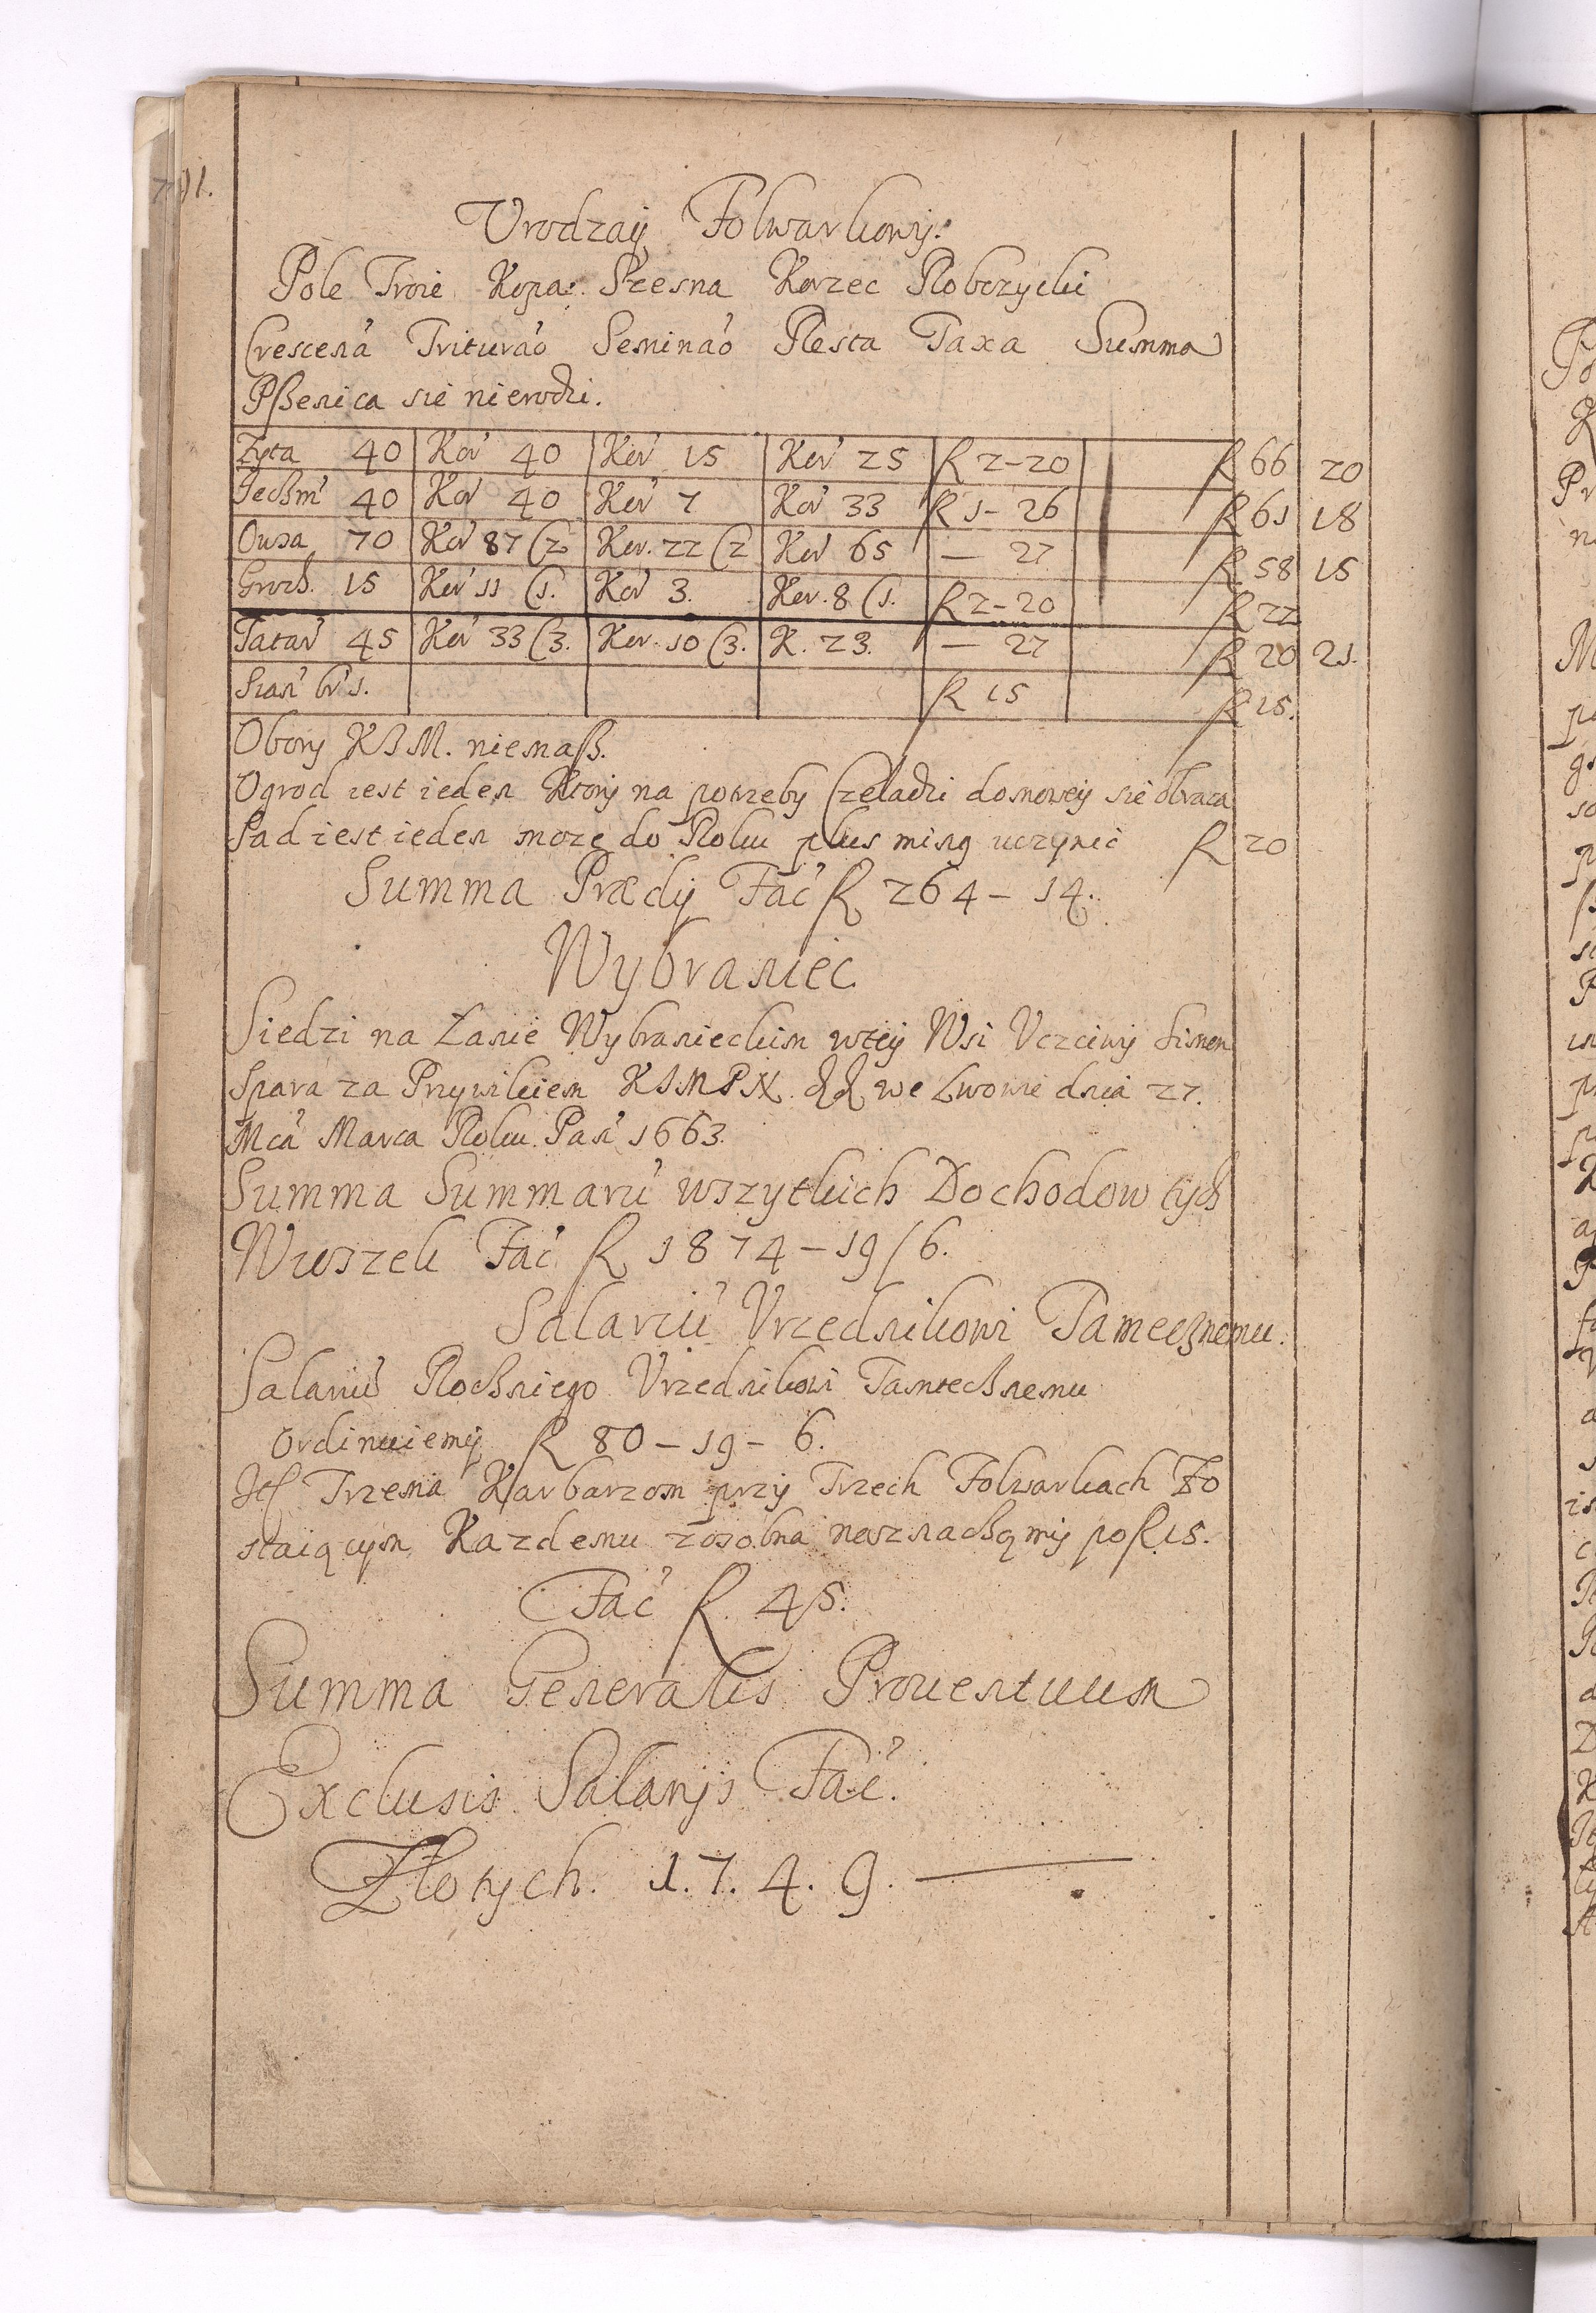 Urodzaij Folwarkowij.
Pole Troie Kopa Rzesna Korzec Robczycki
Crescen' Triturao' Seminao' Resta Taxa Summa
Pszenica sie nierodzi.
Zyta 40 Kor' 40 Kor' 15 Kor' 25 R 2-20 R 66 20
Jeczm' 40 Kor' 40 Kor' 7 Kor' 33 R 1-26 R 61 18
Owsa 70 Kor' 87 (2 Kor. 22 (2 Kor' 65 — 27 R 58 15
Groch. 15 Kor' 11 (1. Kor' 3. Kor. 8 (1. R 2-20 R 22
Tatar' 45 Kor' 33 (3. Kor. 10 (3. K. 23. — 27 R 20 21.
Sian' br' 1. R 15 R 15.
Obory KJM. niemasz.
Ogrod iest ieden Ktory na potrzeby Czeladzi domowey sie obraca
Sad iest ieden moze do Roku plus ming uczynic R 20
Summa Prædij Fac' R 264 - 14.
Wybraniec
Siedzi na Lanie Wybranieckim wtey Wsi Uczciwy Simon
Spara za Przywileiem KJMPN. dd we Lwowie dnia 27.
Mca' Marca Roku Pan' 1663.
Summa Summaru' wszytkich Dochodow tych
Wioszek Fac' R 1874 - 19/6.
Salariu' Urzednikowi Tamecznemu.
Salariu' Roczniego Urzednikowi Tamtecznemu
Ordinuiemy R 80 - 19 - 6.
Jt Trzema Karbarzom przy Trzech Folwarkach Zo
staiącym Kazdemu zosobna naznaczamy po R 15.
Fac' R. 45.
Summa Generalis Prouentuum
Exclusis Salarijs Fac'.
Złotych. 1.7.4.9. —